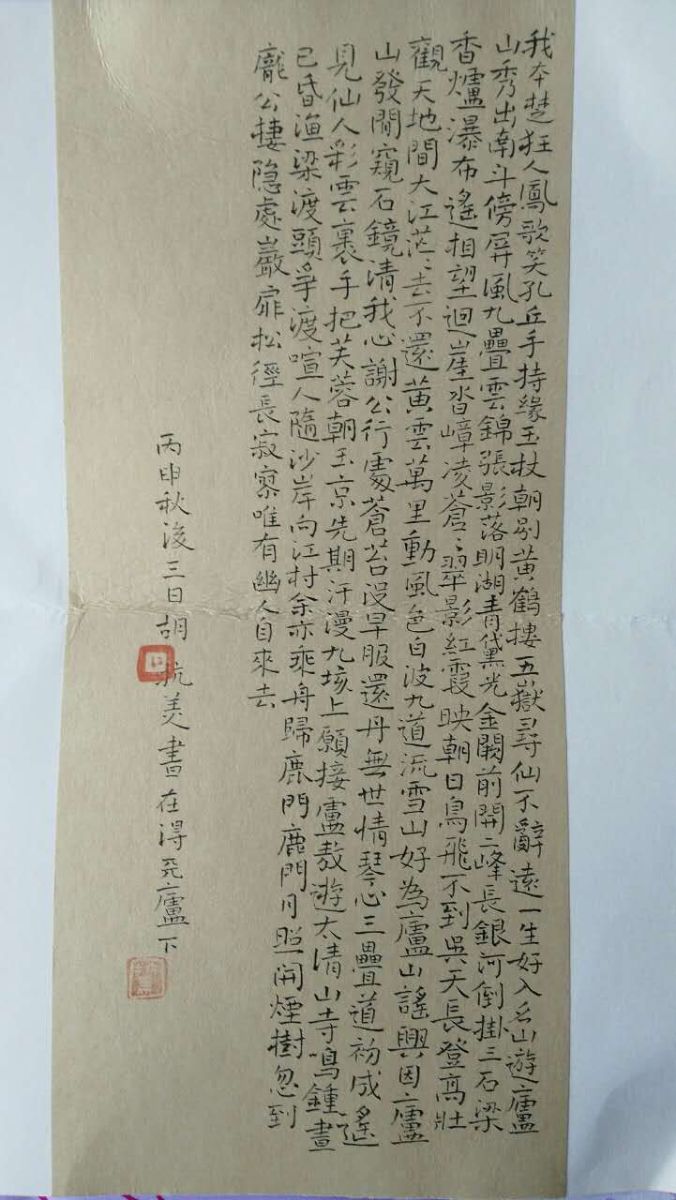 我本楚狂人鳳歌笑孔丘手持緑玉杖朝别黃鶴樓五嶽尋仙不辭遠一生好入名山遊廬
山秀出南斗傍屏風九疊雲錦張影落明湖青黛光金闕前開二峰長銀河倒掛三石梁
香爐瀑布遙相望迴崖沓嶂凌蒼〻翠影紅霞映朝日鳥飛不到吳天長登高壯
觀天地間大江茫〻去不還黃雲萬里動風色白波九道流雪山好為廬山謠興因廬
山發閒窺石鏡清我心謝公行處蒼苔沒早服還丹無世情琴心三疊道初成遙
見仙人彩雲裏手把芙蓉朝玉京先期汗漫九垓上願接盧敖遊太清山寺鳴鍾晝
已昏漁梁渡頭爭渡喧人隨沙岸向江村余亦乘舟歸鹿門鹿門月照開煙樹忽到
龐公棲隐處巖扉松徑長寂寥唯有幽人自來去
丙申秋後三日胡抗美書在得天廬下